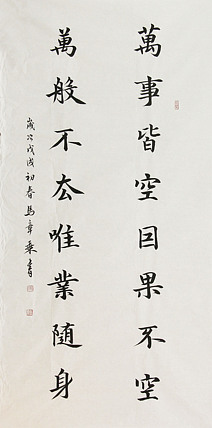 萬事皆空因果不空
萬般不去唯業隨身
歲次戊戌初春馬章乘書